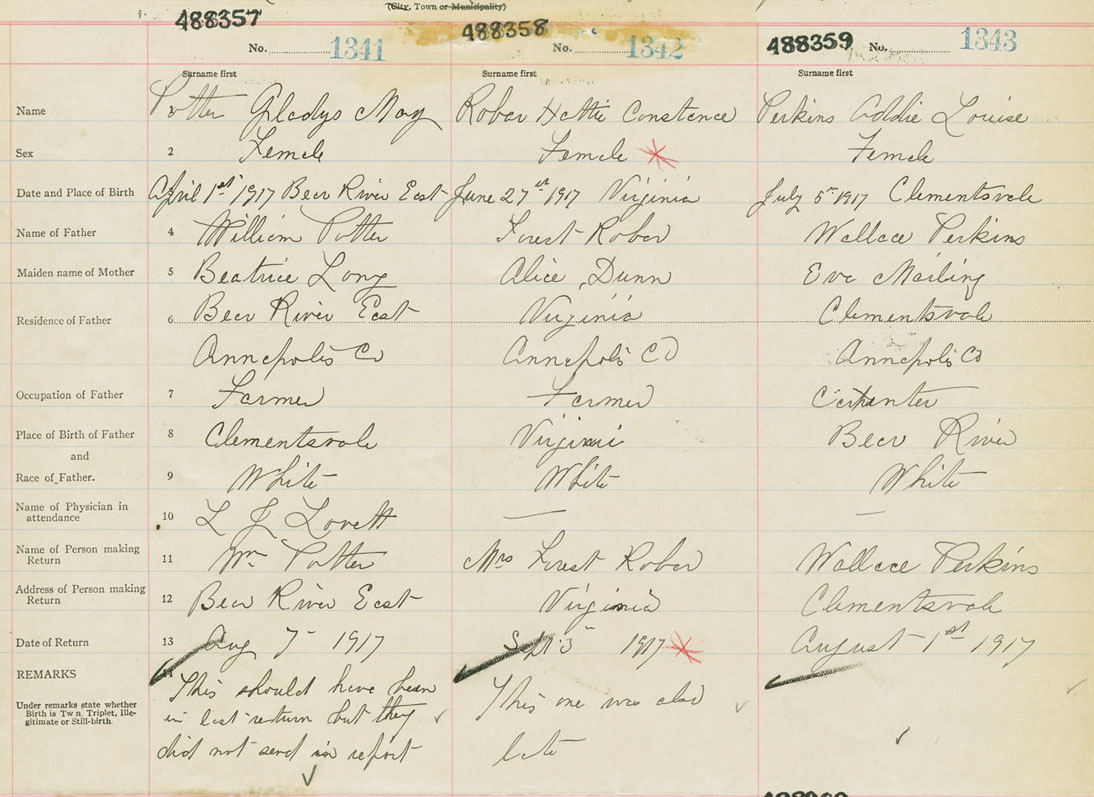 (City, Town or Municipality)
488357 488358 488359
No. 1341 No. 1342 No. 1343
Surname first Surname first Surname first
Name Potter Gladys May Robar Hettie Constence Perkins Addie Louise
Sex 2 Female Female Female
Date and Place of Birth April 1st 1917 Bear River East June 27st 1917 Virginia July 5th 1917 Clementsvale
Name of Father 4 William Potter Forest Robar Wallace Perkins
Maiden name of Mother 5 Beatrice Long Alice Dunn Eva Mailing
Residence of Father 6 Bear River East Virginia Clementsvale
Annapolis Co Annapolis Co Annapolis Co
Occupation of Father 7 Farmer Farmer Carpenter
Place of Birth of Father 8 Clementsvale Virginia Bear River
and
Race of Father. 9 White White White
Name of Physician in attendance 10 L J Lovett —— —
Name of Person making Return 11 Wm Potter Mrs Forest Robar Wallace Perkins
Address of Person making Return 12 Bear River East Virginia Clementsvale
Date of Return 13 Aug 7 1917 Sept 3 1917 August 1st 1917
REMARKS 14
Under remarks state whether Birth is Twin, Triplet, Illegitimate or Still-birth.
This should have been
in last return but they
did not send in report
This one was also
late